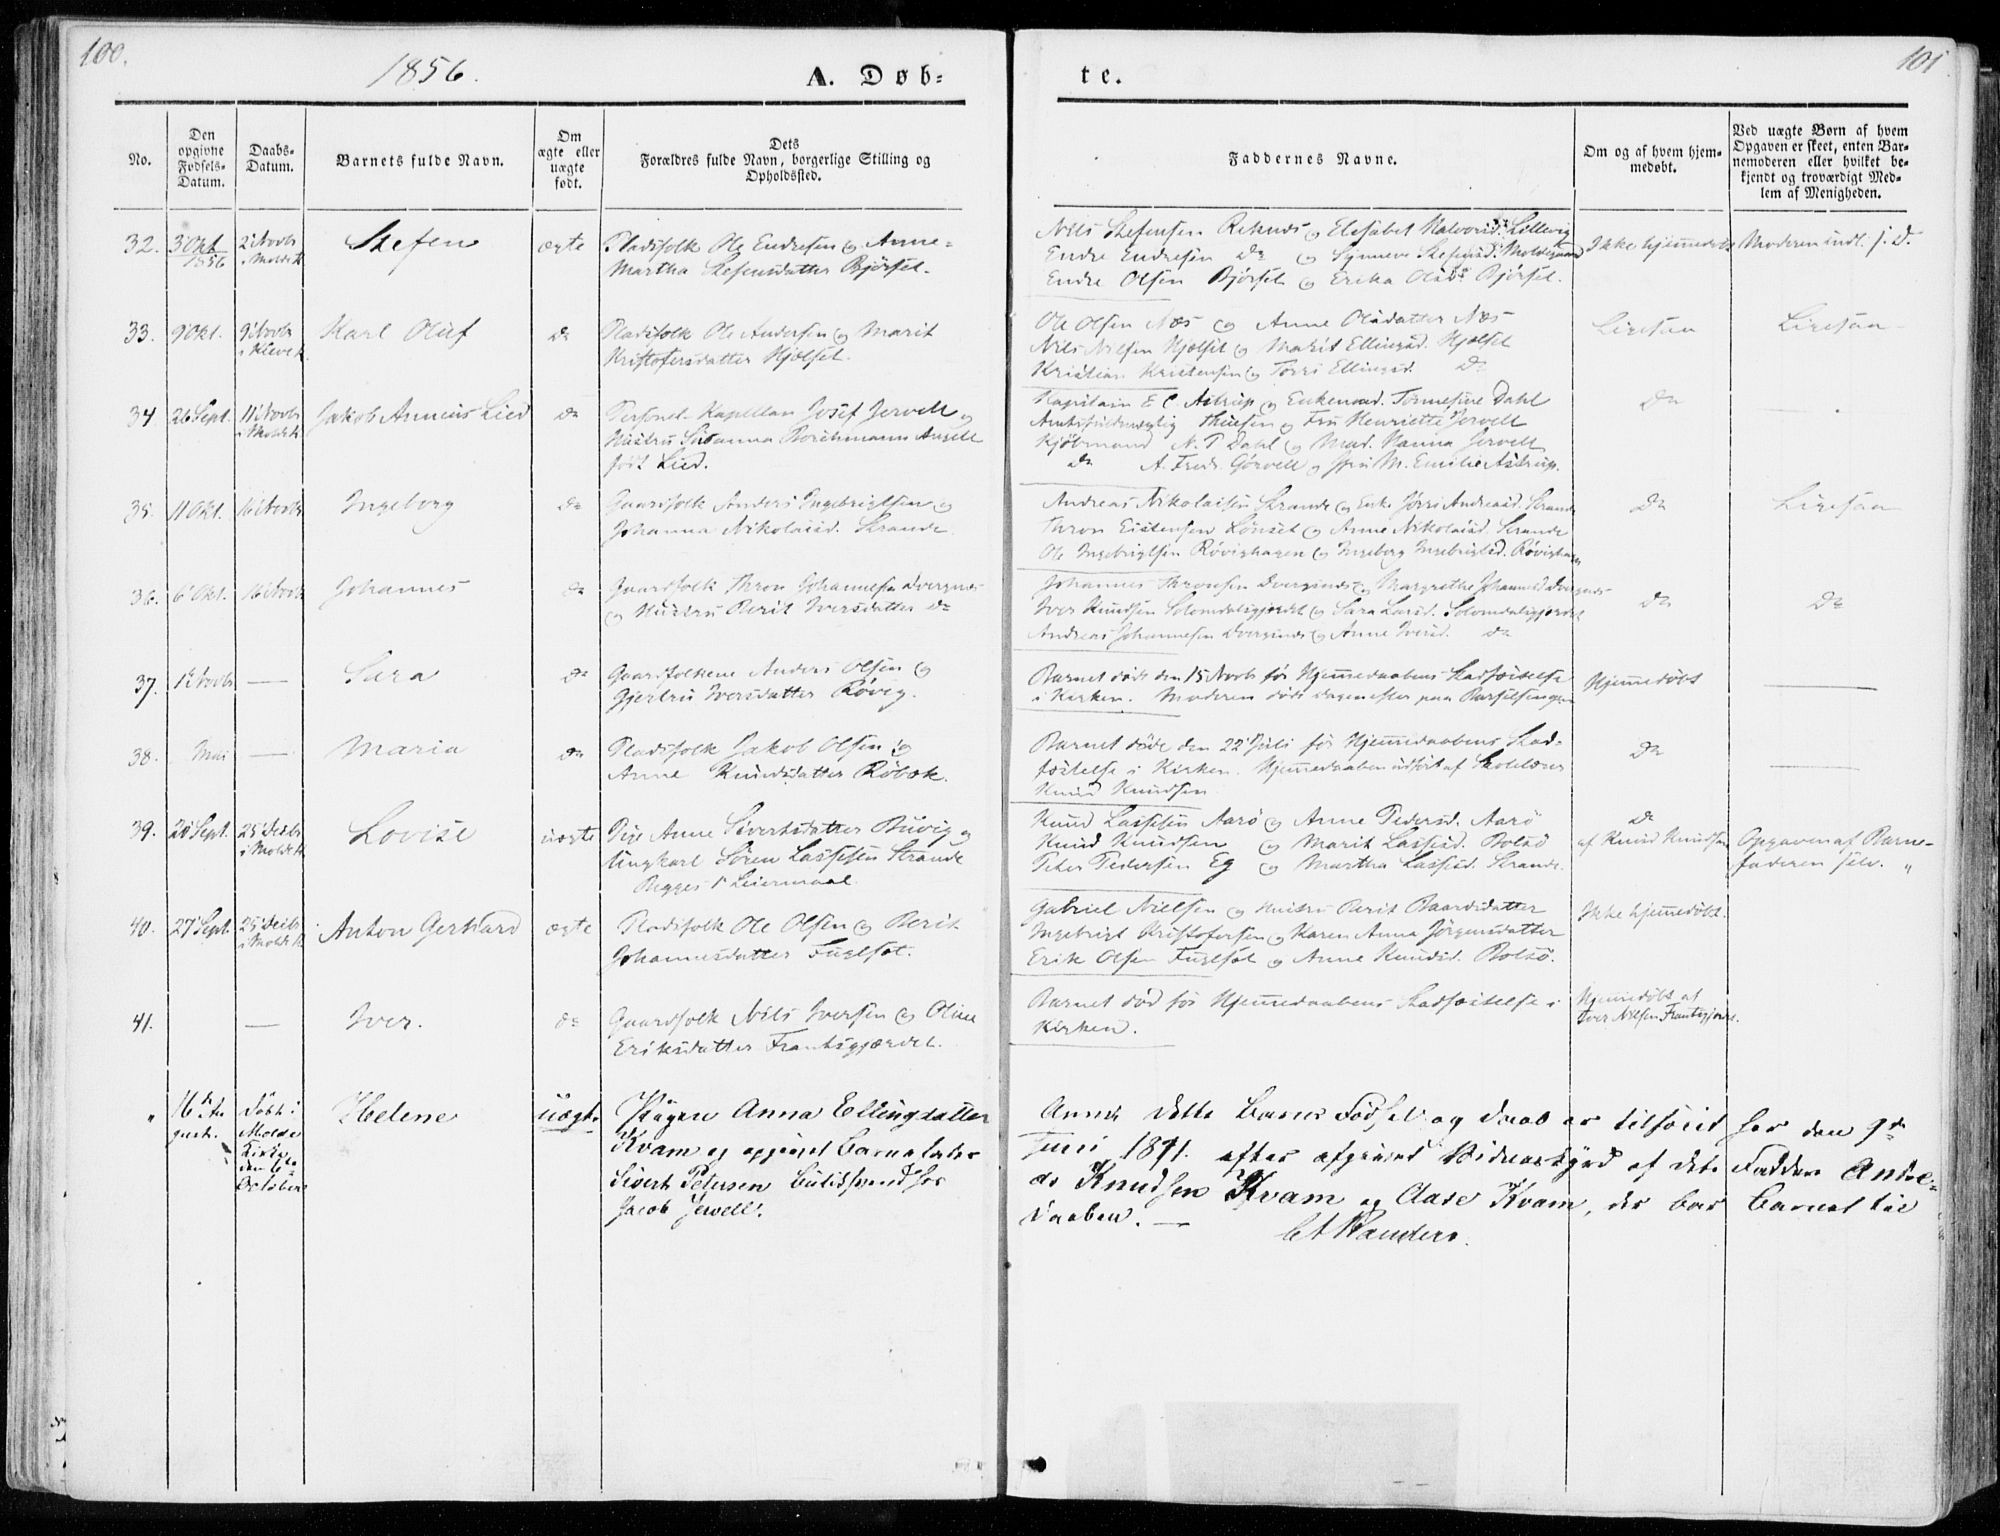 100.
1856.
A. Døb-
te.
101.
No.
Den opgivne Fødsels-Datum.
Daabs-Datum.
Barnets fulde Navn.
Om ægte eller uægte født.
Dets
Forældres fulde Navn, borgerlige Stilling og
Opholdssted.
Faddernes Navne.
Om og af hvem hjem-
medøbt.
Ved uægte Børn af hvem
Opgaven er skeet, enten Bar-
nemoderen eller hvilket be-
kjendt og troværdigt Med-
lem af Menigheden.
32. 3 Okt 1856 2 Novbr i Molde K Stefen ægte Pladsfolk Ole Endresen og Anne
Martha Stefensdatter Bjørset.
Nils Stefensen Reknes og Elisabet Halvorsd. Lillevig
Endre Endresen Do og Synneve Stefensd. Moldegaard
Endre Olsen Bjørset og Erika Olsd. Bjørset.
Ikke hjemmedøbt Moderen indl. j. D.
33. 9 Okt. 9 Novbr i Kleve K. Karl Oluf Do Pladsfolk Ole Andersen og Marit
Kristofersdatter Hjelset.
Ole Olsen Næs og Anne Olsdatter Næs
Nils Nilsen Hjelset og Marit Ellingsd. Hjelset
Kristian Kristensen og Ellingsd. Do
Ligesaa Ligesaa
34. 26 Sept. 11 Novbr i Molde K Jakob Annius Lied Do Personel-Kapellan Josef Jervell og
Hustru Susanna Jervell
født Lied.
Kapitain E C Astrup og Enkemad. Dahl
Amtsfuldmægtig Thuesen og Fru Henriette Jervell
Kjøbmand N. P. Dahl og Mad. Hanna Jervell
Do A. Fredr. Gørvell og Fru M. Emilie Astrup.
Do
35. 11 Okt. 16 Novbr Ingeborg Do Gaardfolk Anders Ingebrigtsen og
Johanna Nikolaisd. Strande.
Andreas Nikolaisen Strande og Enke Andreasd. Strande
Thron Eistensen Lønset og Anne Nikolaisd. Strande
Ole Ingebrigtsen Røvighagen og Ingeborg Ingebrigtsd. Røvighagen
Do Ligesaa
36. 6 Okt. 16 Novbr Johannes Do Gaardfolk Thron Johannesen Dvergnes
og Hustru Berit Iversdatter Do
Johannes Thronsen Dvergsnes og Margrethe Johannesd. Dvergsnes
Iver Knudsen Solemdalsgjerdet og Sara Larsd. Solemdalsgjerdet
Andreas Johannesen Dvergsnes og Anne Iversd. Do
Do Do
37. 12 Novbr — Sara Do Gaardfolkene Anders Olsen og
Gjertru Iversdatter Røvig.
Barnet døde den 15 Novb før Hjemmedaabens Stadfæstelse
i Kirken. Moderen døde dagen efter paa Barselsengen
Hjemmedøbt —
38. Mai — Maria Do Pladsfolk Jakob Olsen og
Anne Knudsdatter Røbæk.
Barnet døde den 22 Juli før Hjemmedaabens Stad-
fæstelse i Kirken. Hjemmedaaben udført af Skolelærer
Knud Knudsen
Do —
39. 20 Sept. 25 Decbr i Molde K. Lovise uægte Pige Anne Sivertsdatter Buvig og
Ungkarl Søren Lassesen Strande
Begges 1 Leiermaal.
Knud Lassesen Aarø og Anne Pedersd. Aarø
Knud Knudsen og Marit Lassesd. Bolsø
Peter Pedersen Eg og Martha Lassesd. Strande.
Do
af Knud Knudsen Opgaven af Barne-
faderen selv. "
40. 27 Sept. 25 Decbr i Molde K. Anton Gerhard ægte Pladsfolk Ole Olsen og Berit
Johannesdatter Fuglset.
Gabriel Nielsen og Hustru Berit Baardsdatter
Ingebrigt Kristofersen og Karen Anna Jørgensdatter
Erik Olsen Fuglset og Anne Knudsd. Bolsø.
Ikke hjemmedøbt.
41. — Iver. Do Gaardfolk Nils Iversen og Oline
Eriksdatter Frantsgjærdet.
Barnet død før Hjemmedaabens Stadfæstelse i
Kirken.
Hjemmedøbt af
Iver Nilsen Frantsgjerdet.
" 16de August. Døbt i Molde Kirke den 6te October Helene uægte Pigen Anna Ellingsdatter
Kvam og opgivet Barnefader
Sivert Petersen hos
Jacob Jervell.
Anm. Dette Barns Fødsel og Daab er tilført her den 9de
Juni 1871. efter afgivet Vidnesbyrd af dets Faddere Andre-
as Knudsen Kvam og Aase Kvam, der bar Barnet til
Daaben. —